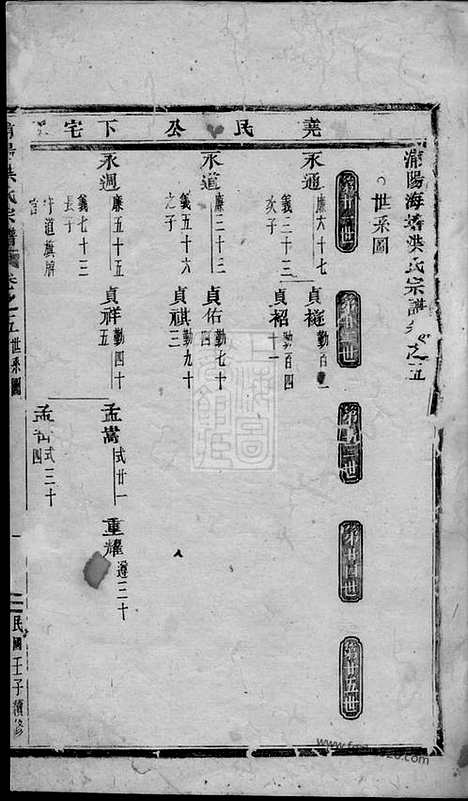 堯民公下宅
浦陽海塘洪氏宗譜卷之五
世系圖
第廿一世
第廿二世
第廿三世
第廿四世
第廿五世
永通
廉六十七
義三十三
次子
貞
勤百
貞韶
勤百四
十一
永道
廉三十三
義五十六
之子
貞佑
勤七十
四
貞祺
勤九十
三
永週
廉五十五
義七十三
長子
守道旗牌
官
貞祥
勤四十
五
孟嵩
式廿一
重耀
遵二十
孟
式三十
四
洪氏宗譜
卷之五
世系圖
一
民國壬子續修